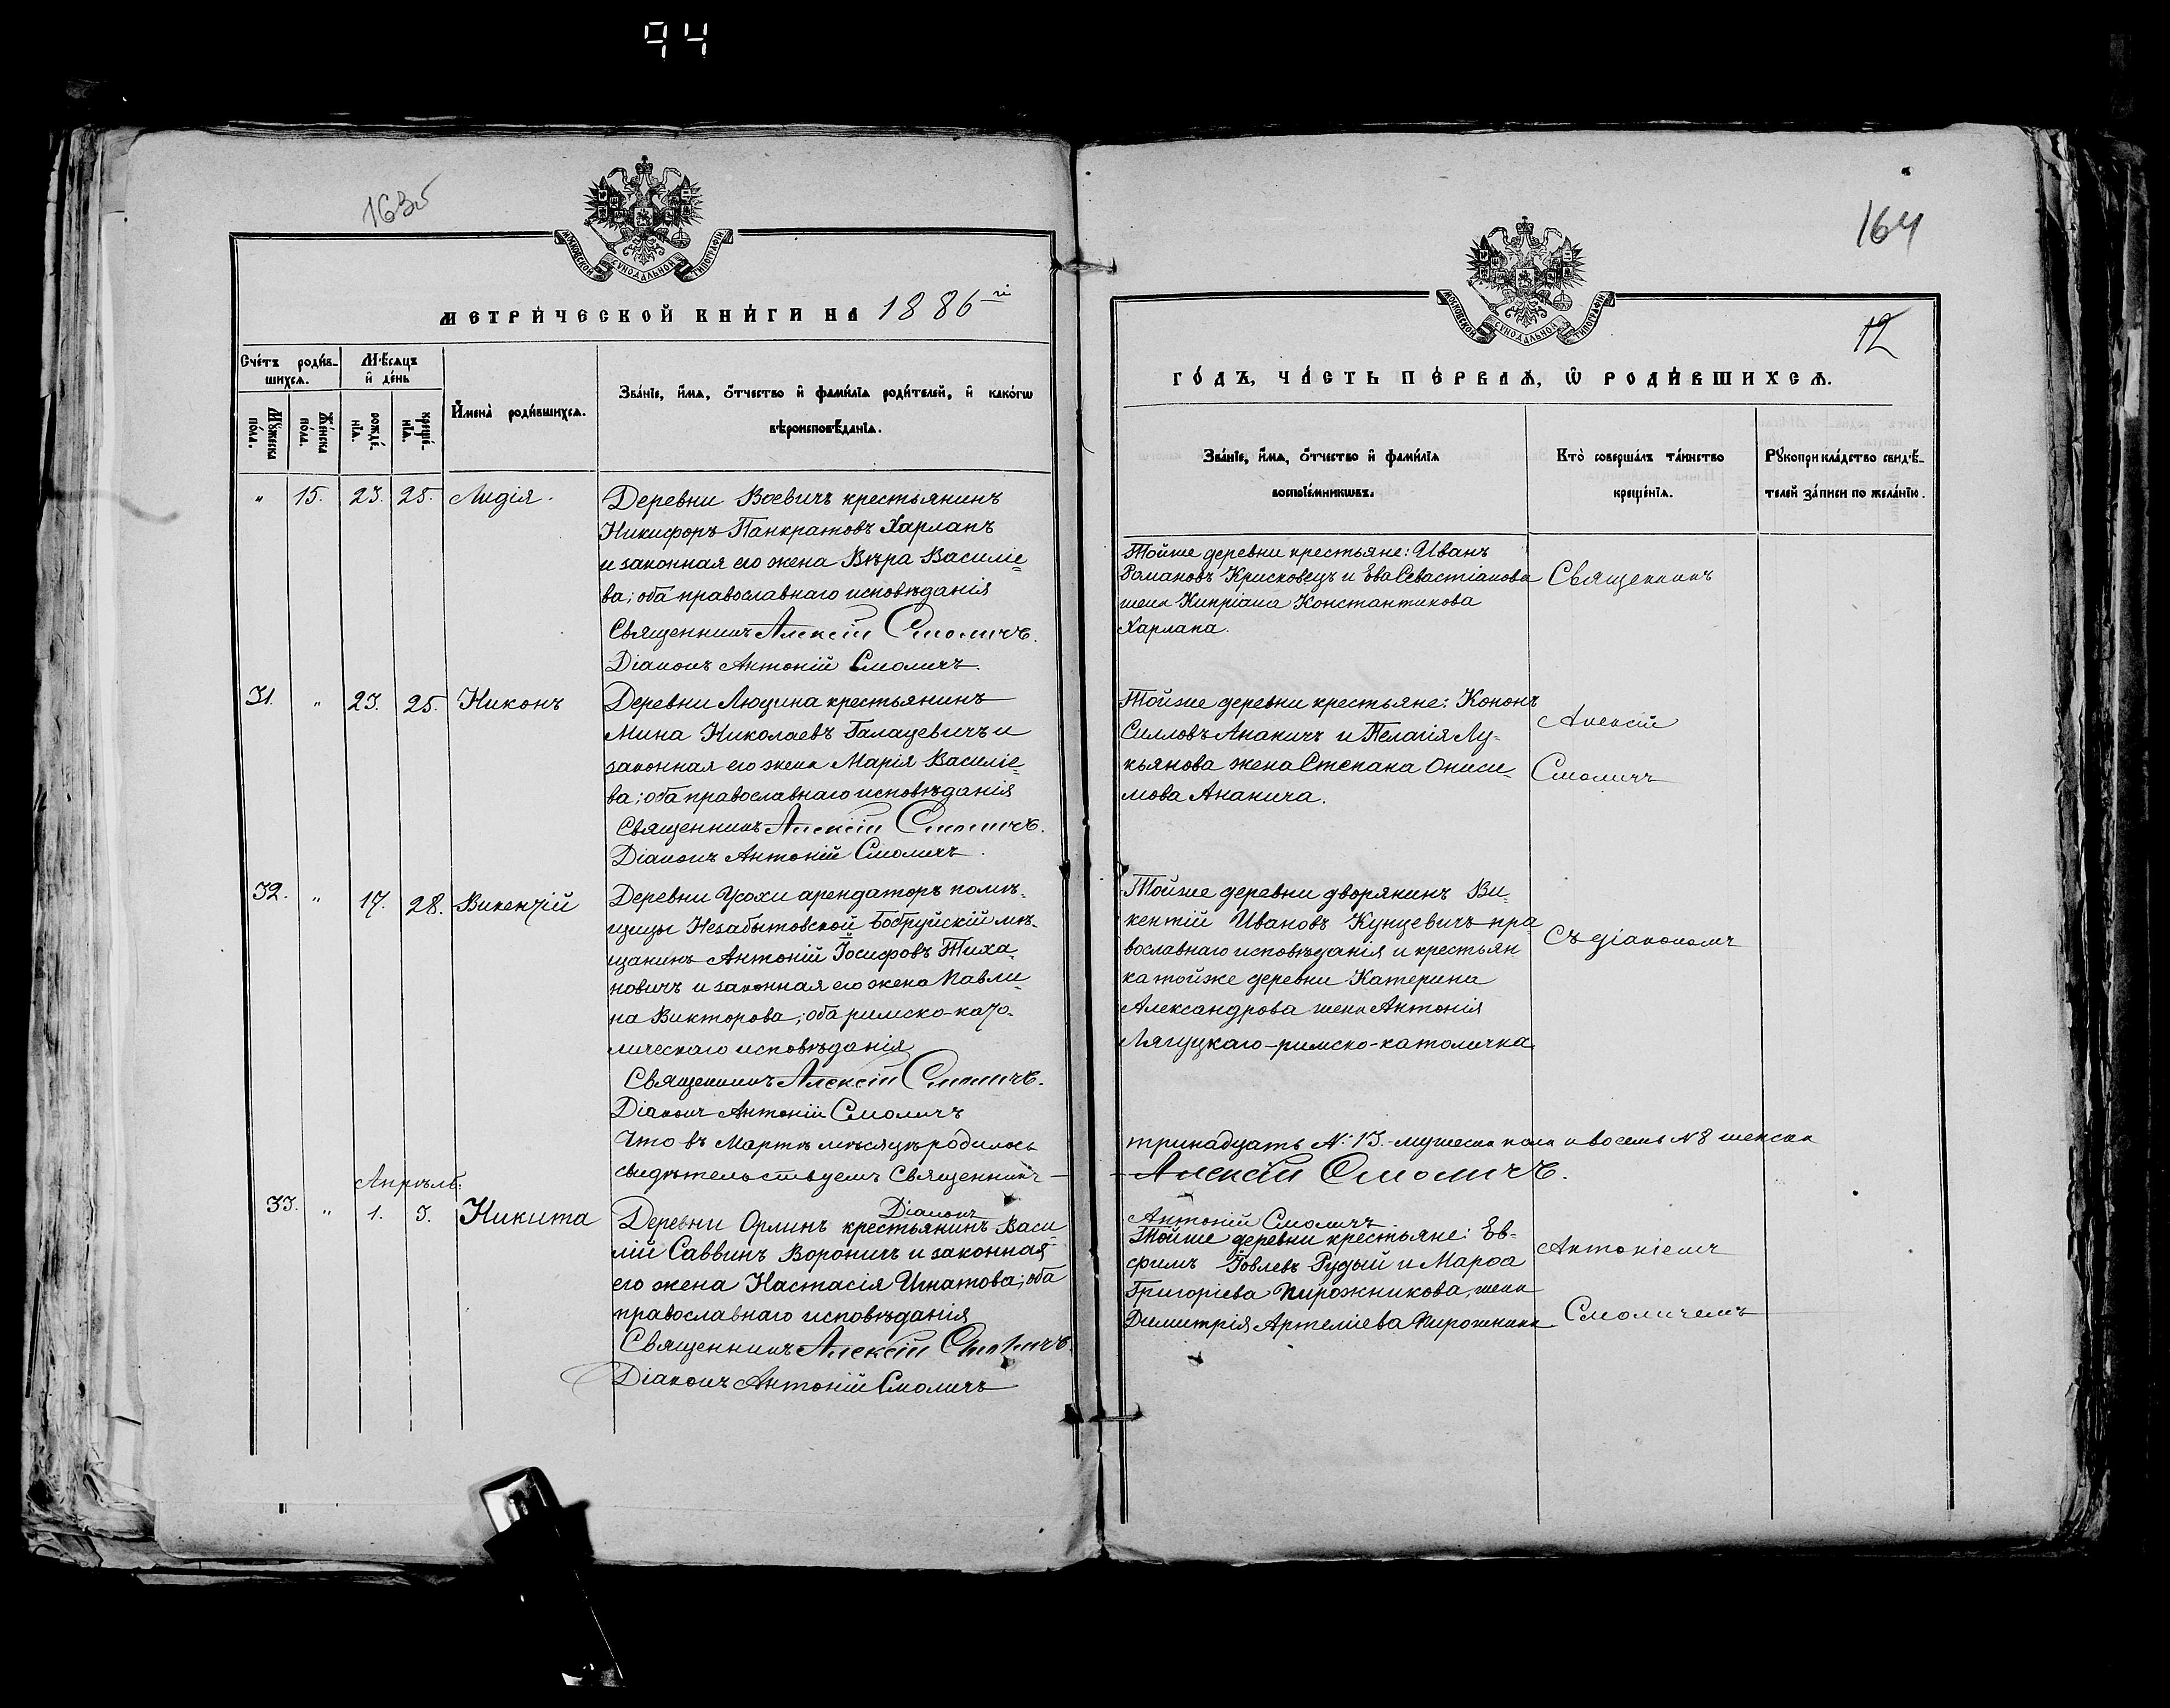 94
163об
МЕТРИ́ЧЕСКОЙ КНИ́ГИ НА 1886 й
Сче́тъ роди́вшихсѧ.
Мѣ́сѧцъ и҆ де́нь
И҆мена̀ роди́вшихсѧ.
Зва́нїе, и҆́мѧ, ѻ҆́тчество и҆ фами́лїѧ роди́телей, и҆ како́гѡ
вѣроисповѣ́данїѧ.
Мꙋ́жеска по́ла.
Же́нска по́ла.
рожде́нїѧ.
креще́нїѧ.
" 15. 23. 25. Лидія.
Деревни Воевичъ крестьянинъ
Никифоръ Панкратовъ Харлапъ
и законная его жена Вѣра Василіе=
ва; оба православнаго исповѣданія
Священникъ Алексій Смоличъ.
Діаконъ Антоній Смоличъ.
31. " 23. 25. Никонъ
Деревни Люцина крестьянинъ
Мина Николаевъ Галацевичъ и
законная его жена Марія Василіе=
ва; оба православнаго исповѣданія
Священникъ Алексій Смоличъ.
Діаконъ Антоній Смоличъ.
32. " 17. 28. Викентій
Деревни Усохи арендаторъ помѣ-
щицы Незабытовской Бобруйскій мѣ-
щанинъ Антоній Іосифовъ Тиха-
новичъ и законная его жена Павли-
на Викторова; оба римско-каѳо-
лическаго исповѣданія
Священникъ Алексій Смоличъ.
Діаконъ Антоній Смоличъ
Что въ Мартѣ мѣсяцѣ родилось
свидѣтельствуемъ Священникъ
Апрѣль:
Діаконъ
33. " 1. 3. Никита
Деревни Орлинъ крестьянинъ Васи
лій Саввинъ Вороничъ и законная
его жена Настасія Игнатова; оба
православнаго исповѣданія
Священникъ Алексій Смоличъ.
Діаконъ Антоній Смоличъ
164
12
ГО́ДЪ, ЧА́СТЬ ПЕ́РВАѦ, Ѡ҆ РОДИ́ВШИХСѦ.
Зва́нїе, и҆́мѧ, ѻ҆́тчество и҆ фами́лїѧ
воспрїе́мникѡвъ.
Кто̀ соверша́лъ та́инство
креще́нїѧ.
Рꙋкоприкла́дство свидѣ́-
телей за́писи по жела́нїю.
Тойже деревни крестьяне: Иванъ
Романовъ Крисковецъ и Ева Севастіанова
жена Кипріана Константинова
Харлапа.
Священникъ
Тойже деревни крестьяне: Кононъ
Силловъ Ананичъ и Пелагія Лу-
кьянова жена Степана Ониси-
мова Ананича.
Алексій
Смоличъ
Тойже деревни дворянинъ Ви-
кентій Ивановъ Кунцевичъ пра
вославнаго исповѣданія и крестьян
ка тойже деревни Катерина
Александрова жена Антонія
Лягуцкаго-римско-католичка
Съ діакономъ
тринадцать №: 13. мужеска пола и восемь № 8 женска
Алексій Смоличъ.
Антоній Смоличъ
Тойже деревни крестьяне: Ев-
фимъ Іовлевъ Рудый и Марѳа
Григоріева Пирожникова, жена
Димитрія Артеміева Пирожника
Антоніемъ
Смоличемъ